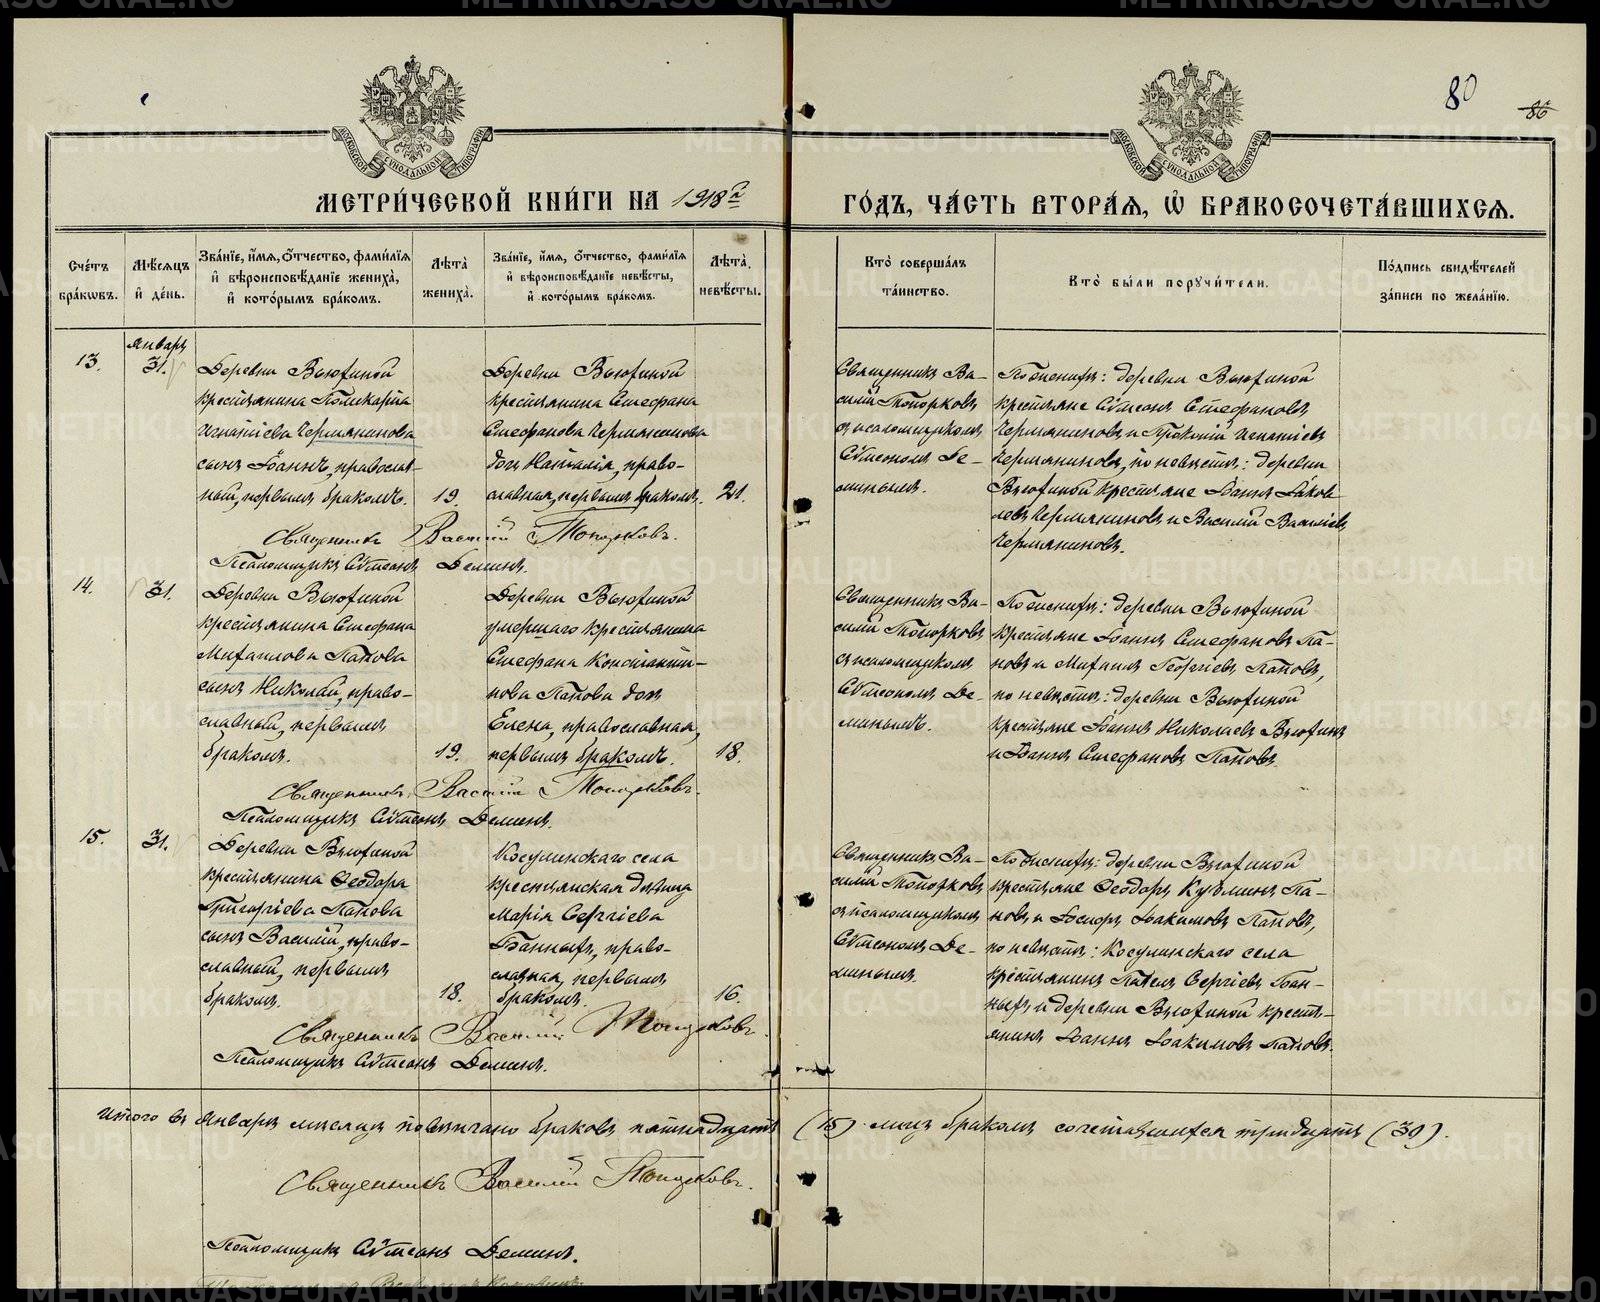 80
86
МЕТРИ́ЧЕСКОЙ КНИ́ГИ НА 1918 г.
ГО́ДЪ, ЧА́СТЬ ВТОРА́Я, Ѡ҆ БРАКОСОЧЕТА́ВШИХСЯ.
Сче́тъ бра́кѡвъ.
Мѣ́сяцъ и҆ де́нь.
Зва́нїе, и҆́мя, ѻ҆́тчество, фами́лїя и҆ вѣроисповѣ́данїе жениха̀, и҆ кото́рымъ бра́комъ.
Лѣ́та̀ жениха̀.
Зва́нїе, и҆́мя, ѻ҆́тчество, фами́лїя и҆ вѣроисповѣ́данїе невѣ́сты, и҆ кото́рымъ бра́комъ.
Лѣ́та̀ невѣ́сты.
Кто̀ соверша́лъ та́инство.
Кто̀ бы́ли порꙋчи́тели.
По́дпись свидѣ́телей за́писи по жела́нїю.
13.
Январь
31.
Деревни Вьюхиной
крестьянина Поликарпа
Игнатіева Чермянинова
сынъ Іоаннъ, православ-
ный, первымъ бракомъ.
19.
Деревни Вьюхиной
крестьянина Стефана
Стефанова Чермянинова
дочь Наталія, право-
славная, первымъ бракомъ.
21.
Священникъ Ва-
силій Топорковъ
съ псаломщикомъ
Сѵмеономъ Де-
минымъ.
По женихѣ: деревни Вьюхиной
крестьяне Сѵмеонъ Стефановъ
Чермяниновъ и Прокопій Игнатіевъ
Чермяниновъ, по невѣстѣ: деревни
Вьюхиной крестьяне Іоаннъ Іаков-
левъ Чермяниновъ и Василій
Чермяниновъ.
Священникъ Василій Топорковъ.
Псаломщикъ Сѵмеонъ Деминъ.
14.
31.
Деревни Вьюхиной
крестьянина Стефана
Михаилова Папова
сынъ Николай, право-
славный, первымъ
бракомъ.
19.
Деревни Вьюхиной
умершаго крестьянина
Стефана Константи-
нова Папова дочь
Елена, православная,
первымъ бракомъ.
18.
Священникъ Ва-
силій Топорковъ
съ псаломщикомъ
Сѵмеономъ Де-
минымъ.
По женихѣ: деревни Вьюхиной
крестьяне Іоаннъ Стефановъ Па-
повъ и Михаилъ Георгіевъ Паповъ,
по невѣстѣ: деревни Вьюхиной
крестьяне Іоаннъ Николаевъ Вьюхинъ
и Іоаннъ Стефановъ Паповъ.
Священникъ Василій Топорковъ.
Псаломщикъ Сѵмеонъ Деминъ.
15.
31.
Деревни Вьюхиной
крестьянина Ѳеодора
Григоріева Папова
сынъ Василій, право-
славный, первымъ
бракомъ.
18.
Косулинскаго села
крестьянская дѣвица
Марія Сергіева
Банныхъ, право-
славная, первымъ
бракомъ.
16.
Священникъ Ва-
силій Топорковъ
съ псаломщикомъ
Сѵмеономъ Де-
минымъ.
По женихѣ: деревни Вьюхиной
крестьяне Ѳеодоръ Кузьминъ Па-
повъ и Іосифъ Іоакимовъ Паповъ,
по невѣстѣ: Косулинскаго села
крестьянинъ Павелъ Сергіевъ Бан-
ныхъ и деревни Вьюхиной кресть-
янинъ Іоаннъ Іоакимовъ Паповъ.
Священникъ Василій Топорковъ.
Псаломщикъ Сѵмеонъ Деминъ.
Итого въ Январѣ мѣсяцѣ повѣнчано браковъ пятнадцать (15) лицъ бракомъ сочетавшихся тридцать (30).
Священникъ Василій Топорковъ.
Псаломщикъ Сѵмеонъ Деминъ.
METRIKI.GASU-URAL.RU